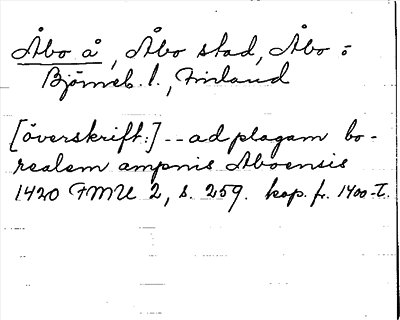 Åbo å, Åbo stad, Åbo o
Björneb. l., Finland
[överskrift:] -- ad plagam bo-
realem ampnis Aboensis
1420 FMU 2, s. 259. kop. fr. 1400-t.